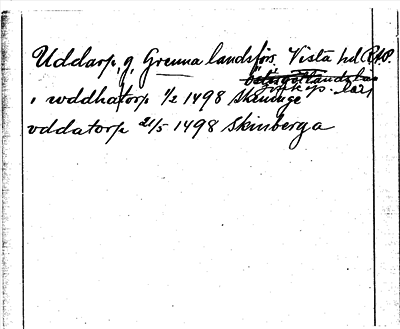 Uddarp, g, Grenna landsförs. Vista hd
Jönköp. län
i wddhatorp 1/2 1498 Skeninge
vddatorp 21/5 1498 Skinberga